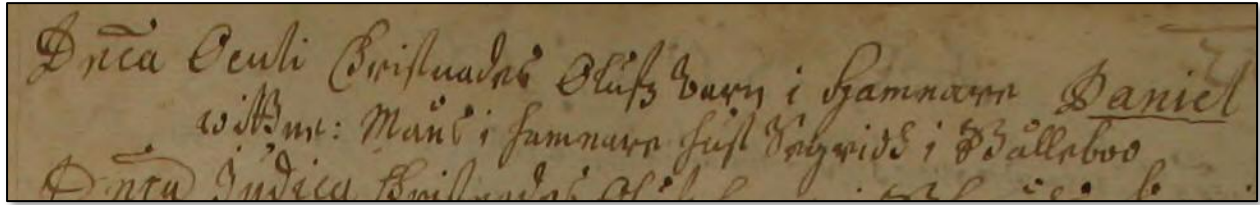 Dnica Oculi Christnades Olufz barn i Hamnare Daniel
wittne: Måns i Hamnare hust Segridh i Bålleboo
Dnica Judica Christnades